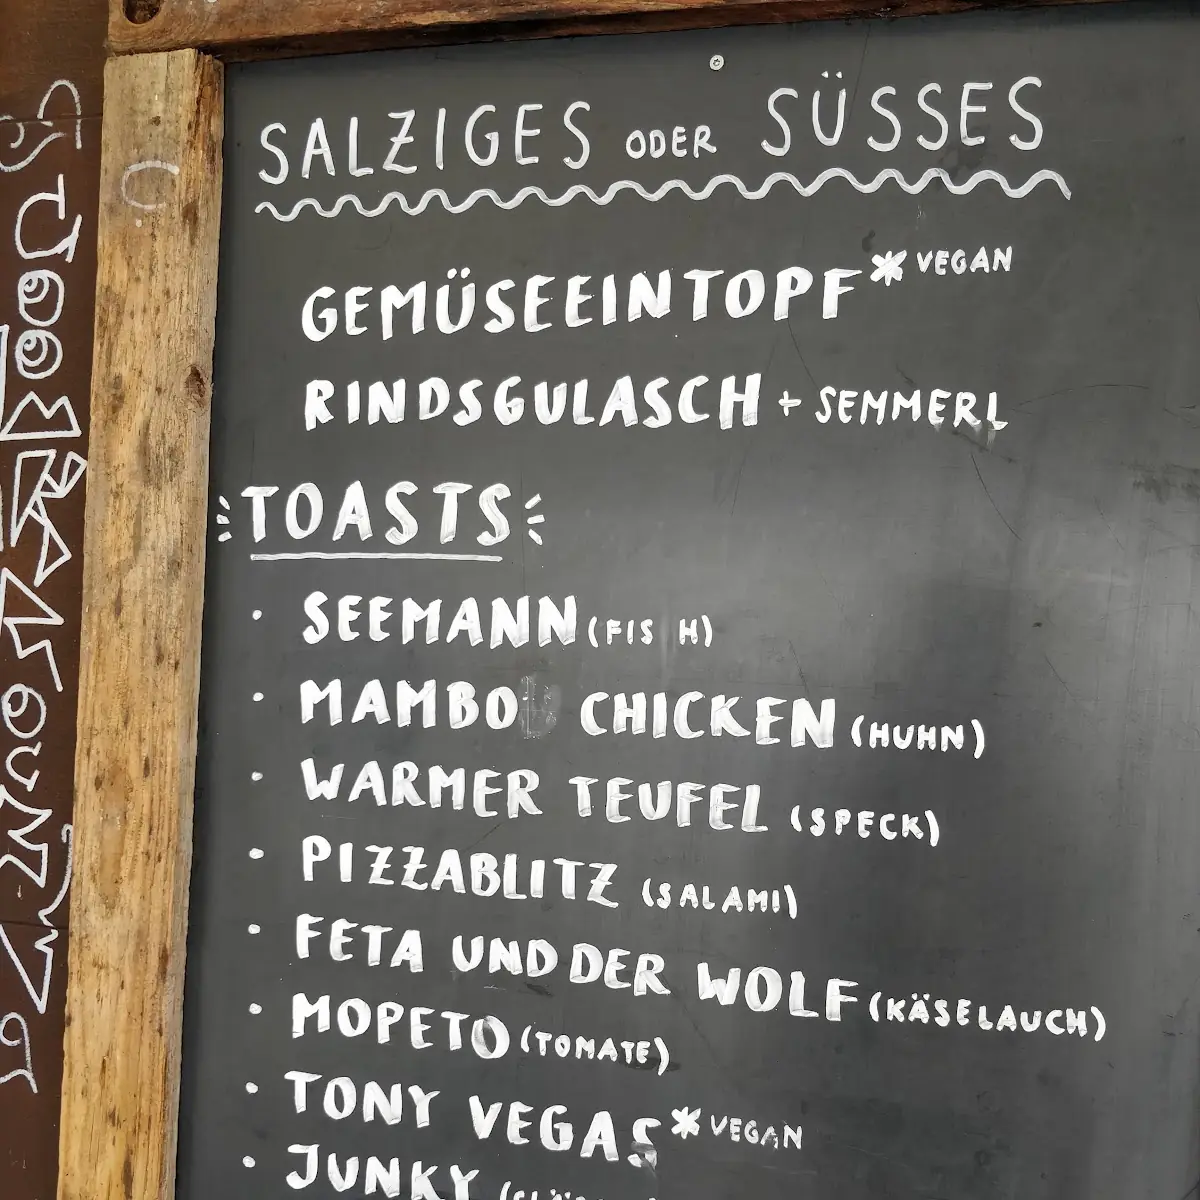 SALZIGES ODER SÜSSES
GEMÜSEEINTOPF* VEGAN
RINDSGULASCH + SEMMERL
TOASTS
· SEEMANN (FISH)
· MAMBO CHICKEN (HUHN)
· WARMER TEUFEL (SPECK)
· PIZZABLITZ (SALAMI)
· FETA UND DER WOLF (KÄSELAUCH)
· MOPETO (TOMATE)
· TONY VEGAS* VEGAN
· JUNKY